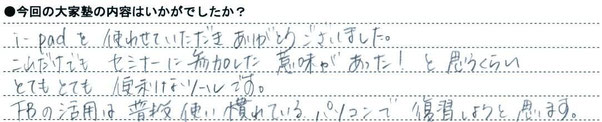 ●今回の大家塾の内容はいかがでしたか？
i-padを使わせていただきありがとうございました。
これだけでもセミナーに参加した意味があった！と思うくらい
とてもとても便利なツールです。
FBの活用は普段使い慣れているパソコンで復習しようと思います。